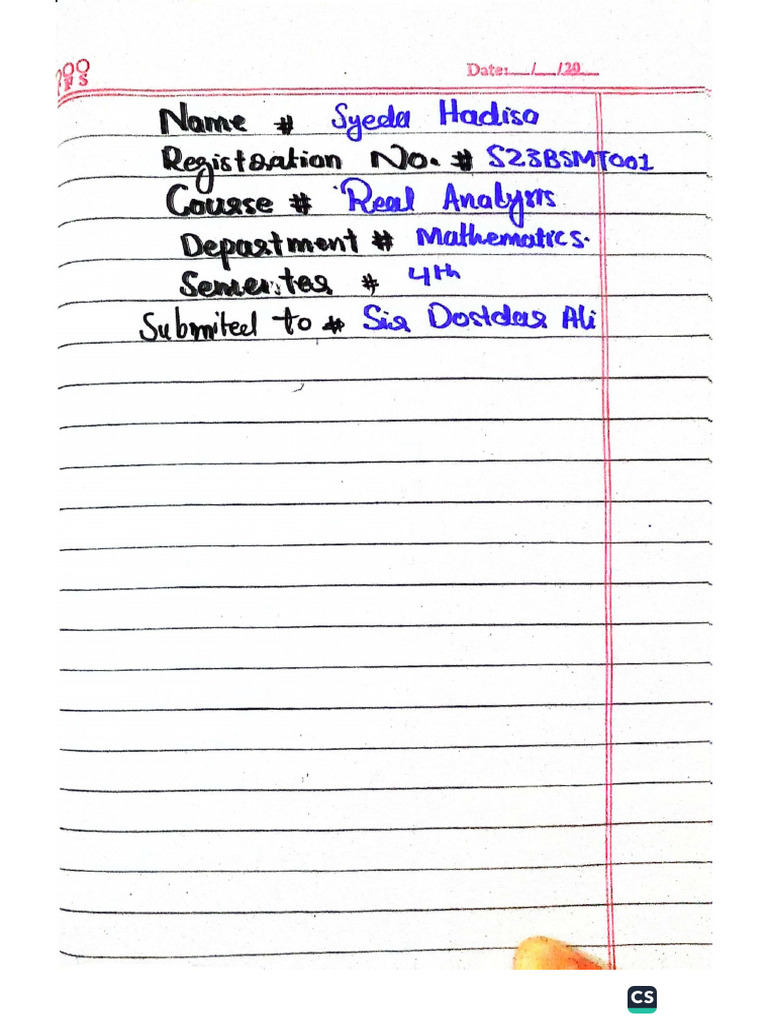 Date: __/__/20__
Name # Syeda Hadisa
Registration No. # S23BSMT001
Course # Real Analysis
Department # Mathematics.
Semester # 4th
Submited to # Sir Dostdar Ali
CS